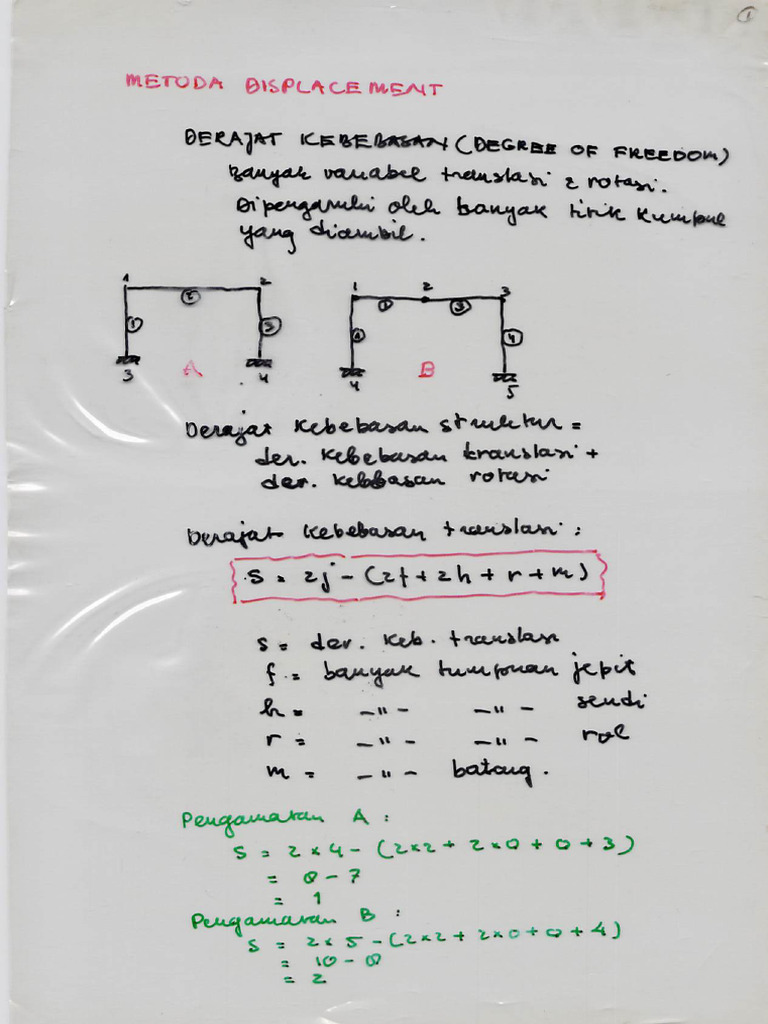 1
METODA DISPLACEMENT
DERAJAT KEBEBASAN (DEGREE OF FREEDOM)
Banyak variabel translasi & rotasi.
Dipengaruhi oleh banyak titik kumpul
yang diambil.
1 2 1 2 3
2 1 3
1 3 1 4
3 A 4 4 B 5
Derajat kebebasan struktur =
der. kebebasan translasi +
der. kebebasan rotasi
Derajat kebebasan translasi :
s = 2j - (2f + 2h + r + m)
s = der. keb. translasi
f = banyak tumpuan jepit
h = -"- -"- sendi
r = -"- -"- rol
m = -"- batang.
Pengamatan A :
s = 2 x 4 - (2x2 + 2x0 + 0 + 3)
= 8 - 7
= 1
Pengamatan B :
s = 2x5 - (2x2 + 2x0 + 0 + 4)
= 10 - 8
= 2